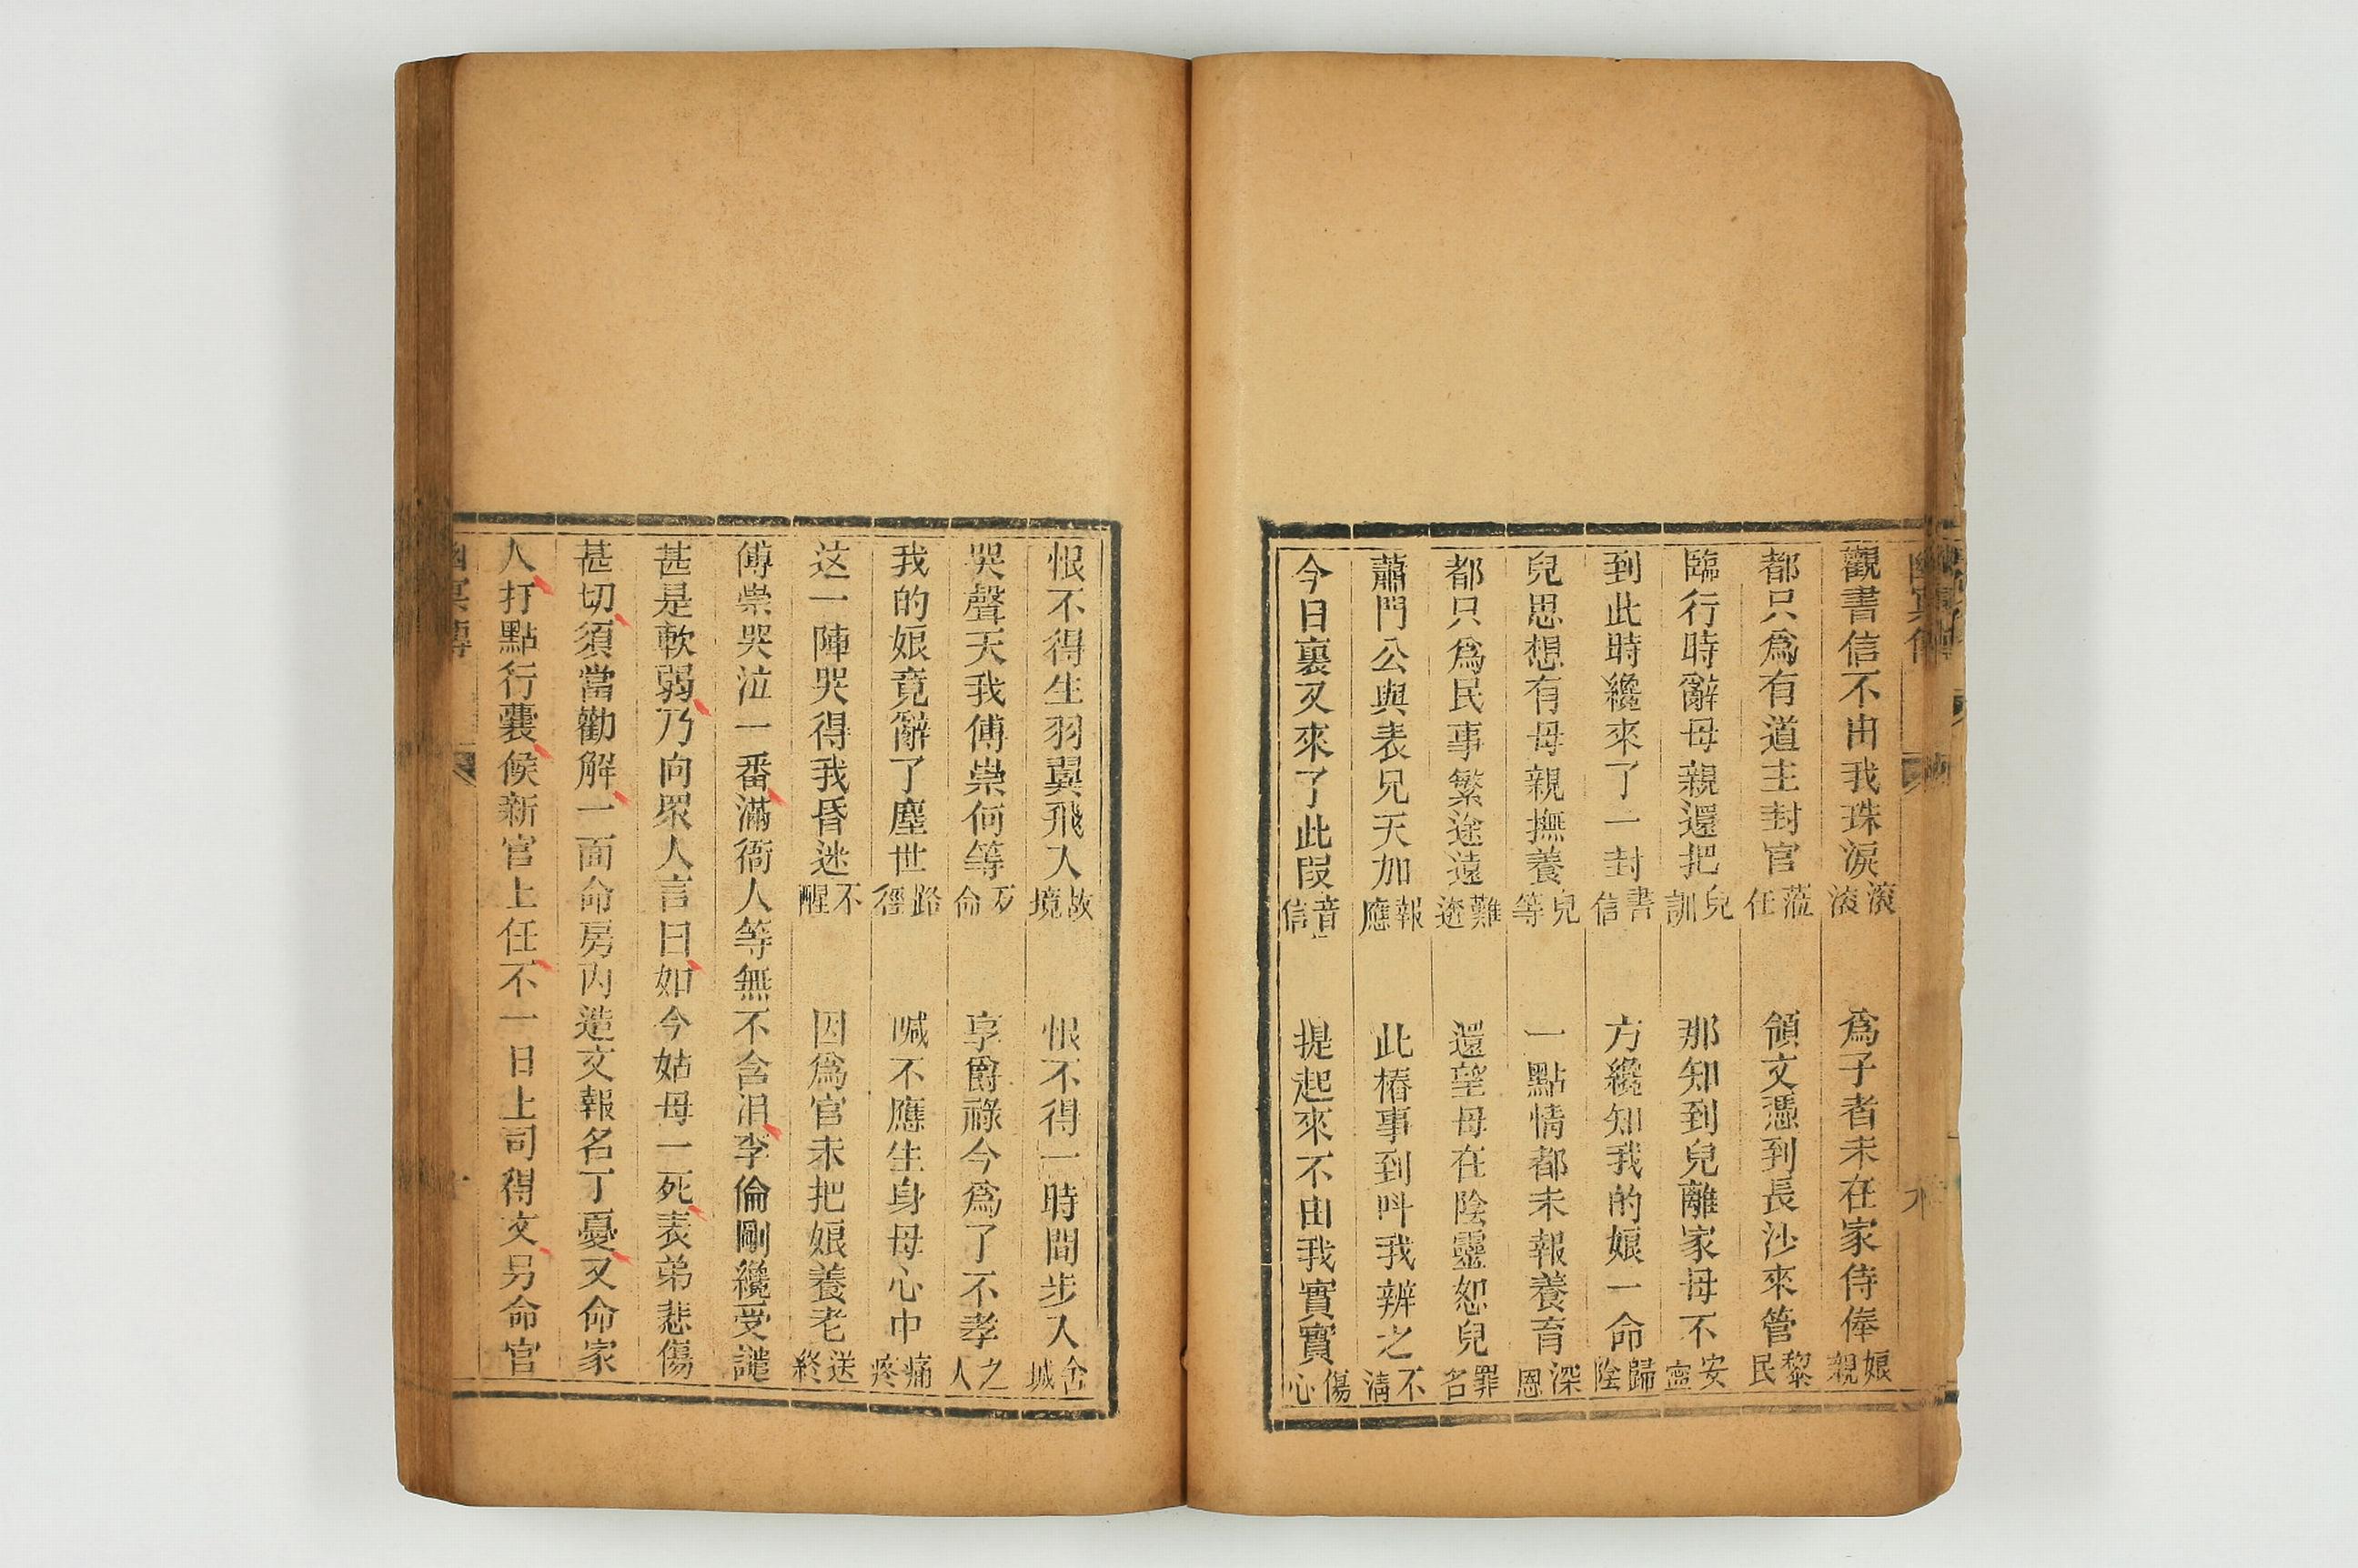 觀書信不由我珠淚滾滾　為子者未在家侍俸娘親
都只爲有道主封官蒞任　領文憑到長沙來管黎民
臨行時辭母親還把兒訓　那知到兒離家母不安寧
到此時纔來了一封書信　方纔知我的娘一命歸陰
兒思想有母親撫養兒等　一點情都未報養育深恩
都只爲民事繁途遠難逃　還望母在陰靈恕兒罪名
蕭門公與表兄天加報應　此樁事到叫我辨之不清
今日裏又來了此段音信　提起來不由我實實傷心
恨不得生羽翼飛入故境　恨不得一時間步入舍城
哭聲天我傅崇何等歹命　享爵祿今爲了不孝之人
我的娘竟辭了塵世路徑　喊不應生身母心中痛疼
这一陣哭得我昏迷不醒　因爲官未把娘養老送終
傅崇哭泣一番滿衙人等無不含泪李倫剛纔受譴
甚是軟弱乃向眾人言曰如今姑母一死表弟悲傷
甚切須當勸解一面命房內造文報名丁憂又命家
人打點行囊候新官上任不一日上司得文另命官
幽冥傳